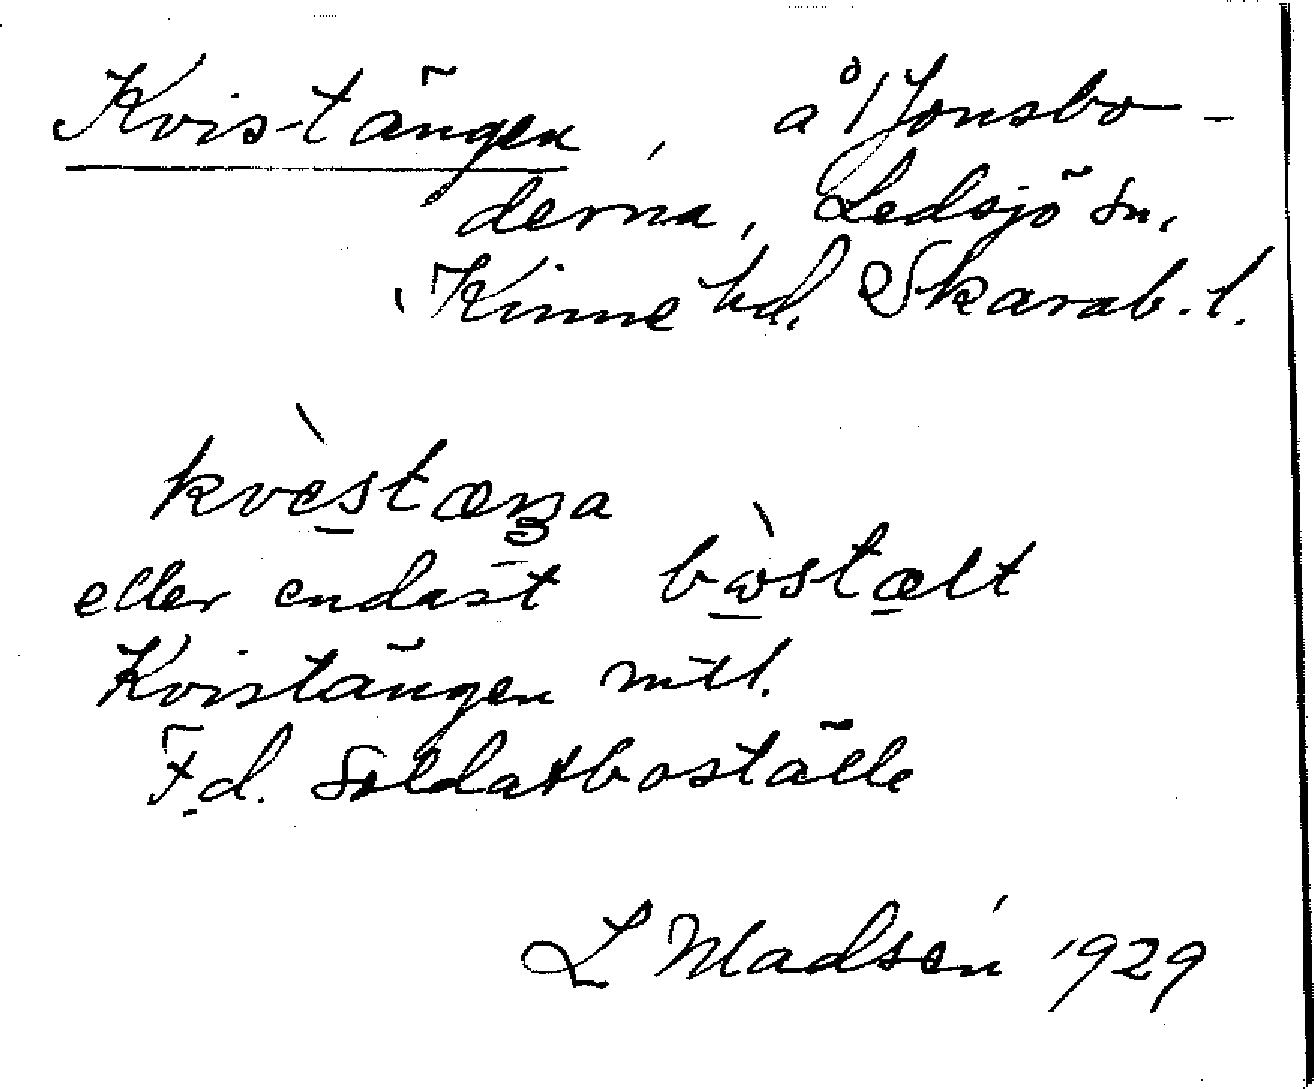 Kvistängen, å/Jonsbo-
derna, Ledsjö sn,
Kinne hd, Skarab. l.
kvèstæŋa
eller endast bòstælt
Kvistängen mtl.
F.d. Soldatboställe
L Madsén 1929